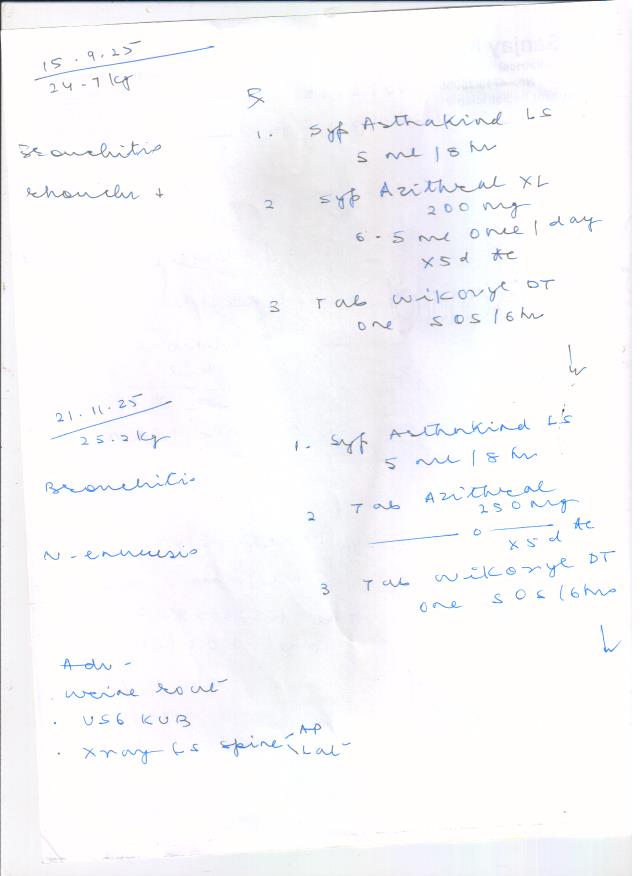 15.9.25
24.7 kg
Rx
Bronchitis
rhonchi +
1. Syp Asthakind LS
5 ml / 8 hr
2 Syp Azithral XL
200 mg
6.5 ml once / day
x5d
3 Tab Wikoryl DT
one SOS / 6 hr
21.11.25
25.2 kg
Bronchitis
N-enuresis
1. Syp Asthakind LS
5 ml / 8 hr
2 Tab Azithral
250 mg
—— o ——
x5d
3 Tab Wikoryl DT
one SOS / 6 hrs
Adv -
urine rout
. USG KUB
. Xray LS spine AP
Lat